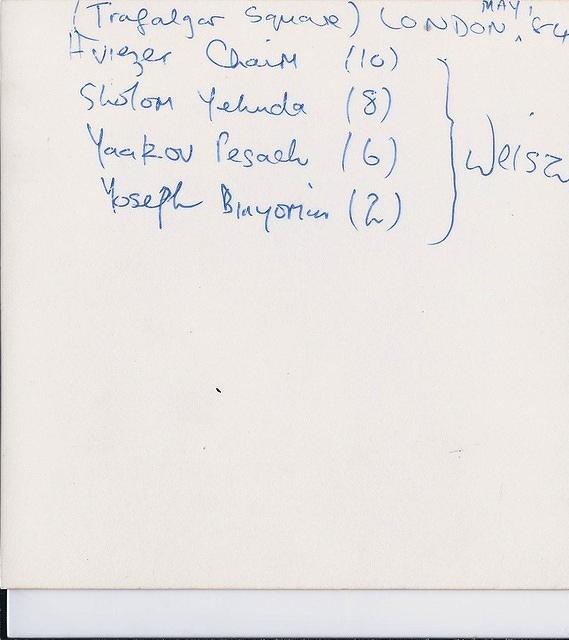 (Trafalgar Square) LONDON, MAY '84
Aviezer Chaim (10)
Sholom Yehuda (8)
Yaakov Pesach (6)
Yoseph Binyomin (2)
Weisz